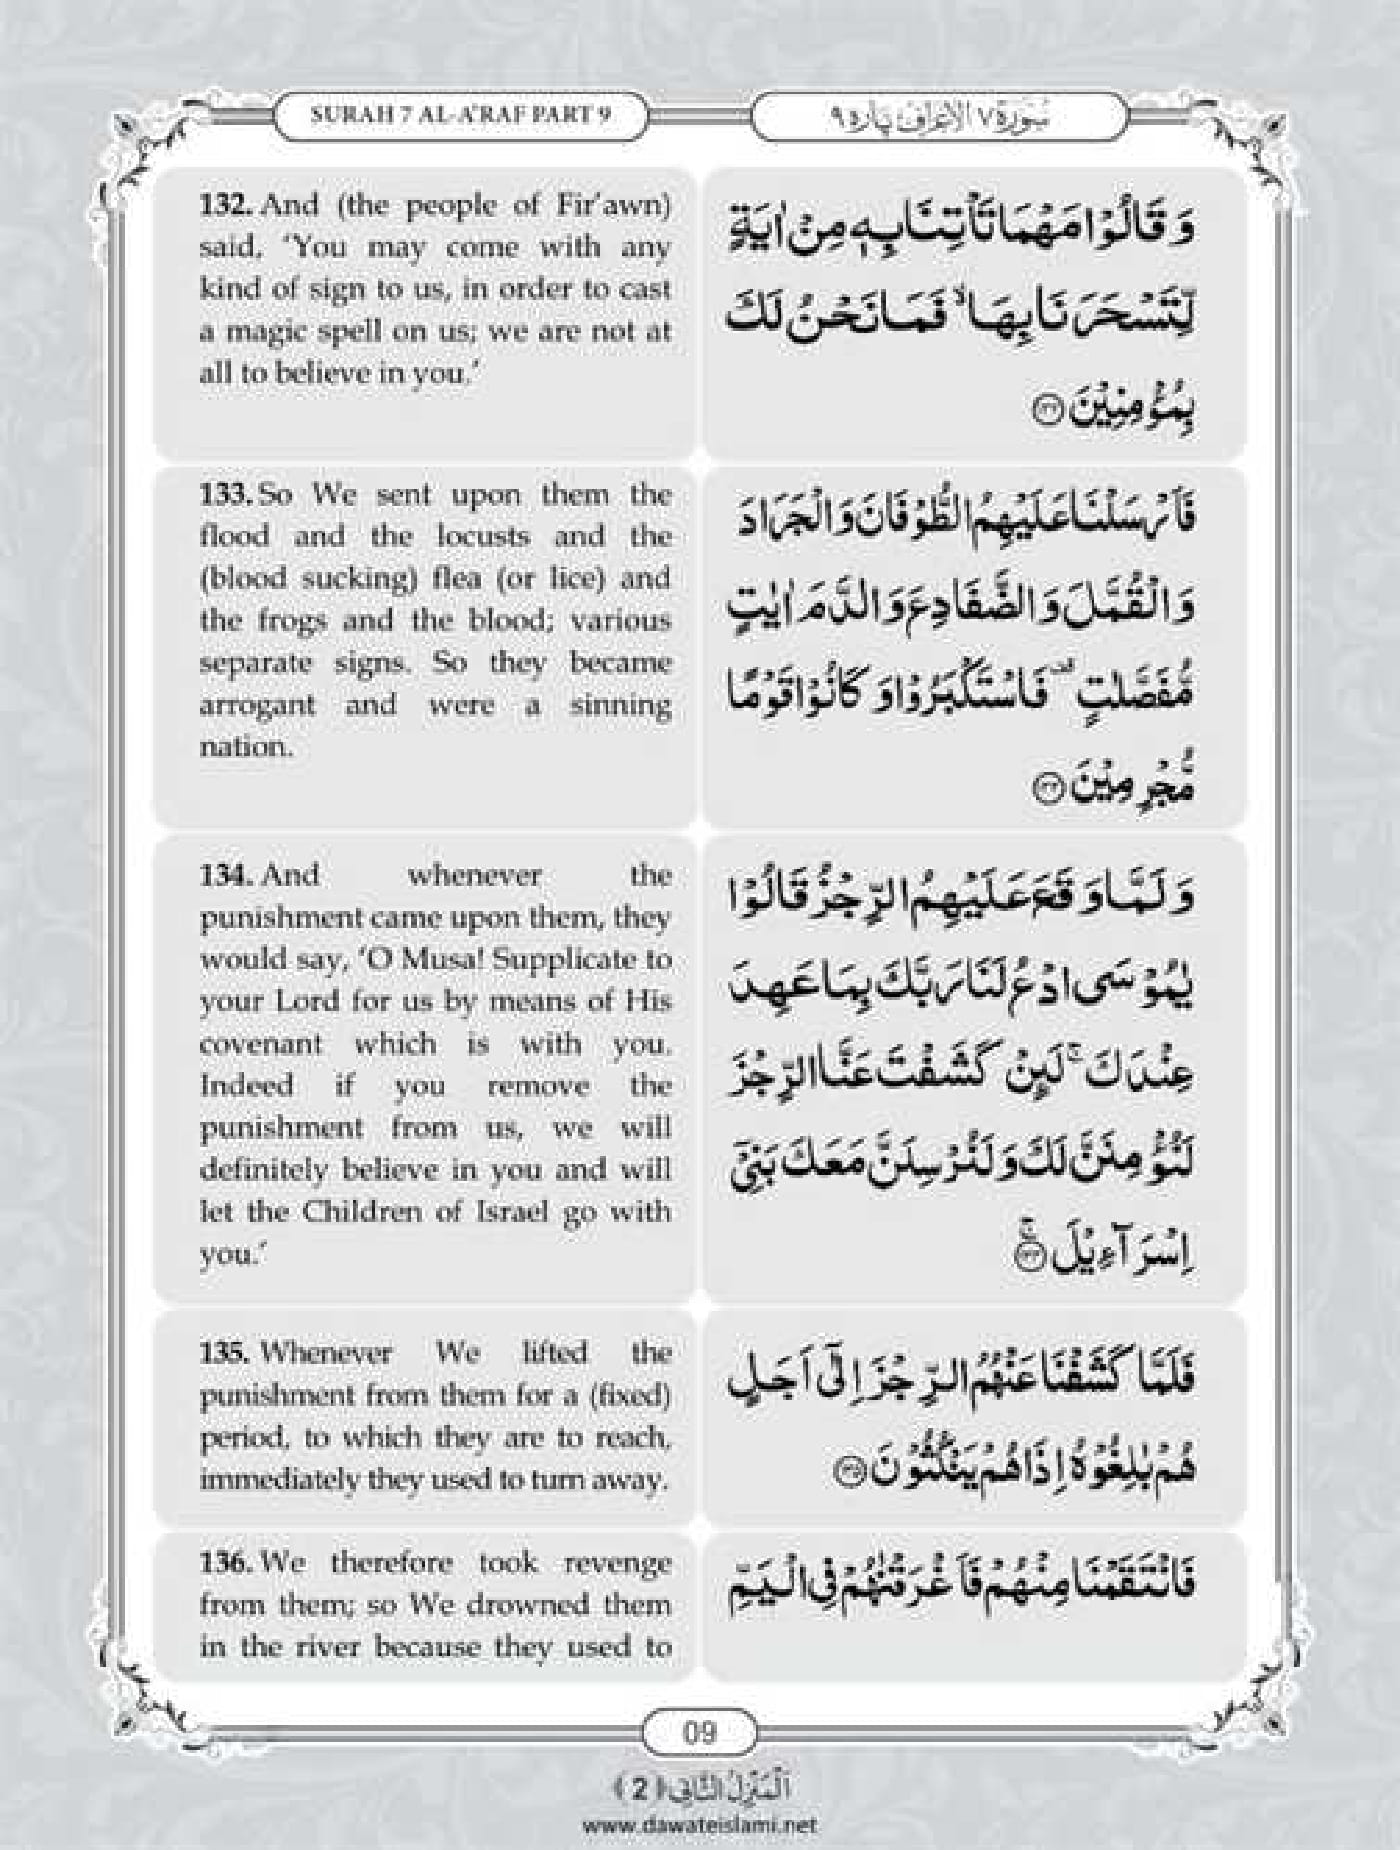 SURAH 7 AL-A'RAF PART 9
سُورَة ٧ الْاَعْرَاف پَارَہ ٩
132. And (the people of Fir'awn)
said, 'You may come with any
kind of sign to us, in order to cast
a magic spell on us; we are not at
all to believe in you.'
وَ قَالُوْا مَهْمَا تَاْتِنَا بِهٖ مِنْ اٰیَةٍ
لِّتَسْحَرَنَا بِهَا ۙ فَمَا نَحْنُ لَكَ
بِمُؤْمِنِیْنَ ۝۱۳۲
133. So We sent upon them the
flood and the locusts and the
(blood sucking) flea (or lice) and
the frogs and the blood; various
separate signs. So they became
arrogant and were a sinning
nation.
فَاَرْسَلْنَا عَلَیْهِمُ الطُّوْفَانَ وَ الْجَرَادَ
وَ الْقُمَّلَ وَ الضَّفَادِعَ وَ الدَّمَ اٰیٰتٍ
مُّفَصَّلٰتٍ ۫ فَاسْتَكْبَرُوْا وَ كَانُوْا قَوْمًا
مُّجْرِمِیْنَ ۝۱۳۳
134. And whenever the
punishment came upon them, they
would say, 'O Musa! Supplicate to
your Lord for us by means of His
covenant which is with you.
Indeed if you remove the
punishment from us, we will
definitely believe in you and will
let the Children of Israel go with
you.'
وَ لَمَّا وَقَعَ عَلَیْهِمُ الرِّجْزُ قَالُوْا
یٰمُوْسَى ادْعُ لَنَا رَبَّكَ بِمَا عَهِدَ
عِنْدَكَ ۚ لَىِٕنْ كَشَفْتَ عَنَّا الرِّجْزَ
لَنُؤْمِنَنَّ لَكَ وَ لَنُرْسِلَنَّ مَعَكَ بَنِیْۤ
اِسْرَآءِیْلَ ۝۱۳۴ۚ
135. Whenever We lifted the
punishment from them for a (fixed)
period, to which they are to reach,
immediately they used to turn away.
فَلَمَّا كَشَفْنَا عَنْهُمُ الرِّجْزَ اِلٰۤى اَجَلٍ
هُمْ بٰلِغُوْهُ اِذَا هُمْ یَنْكُثُوْنَ ۝۱۳۵
136. We therefore took revenge
from them; so We drowned them
in the river because they used to
فَانْتَقَمْنَا مِنْهُمْ فَاَغْرَقْنٰهُمْ فِی الْیَمِّ
09
اَلْمَنْزِلُ الثَّانِی ﴿2﴾
www.dawateislami.net